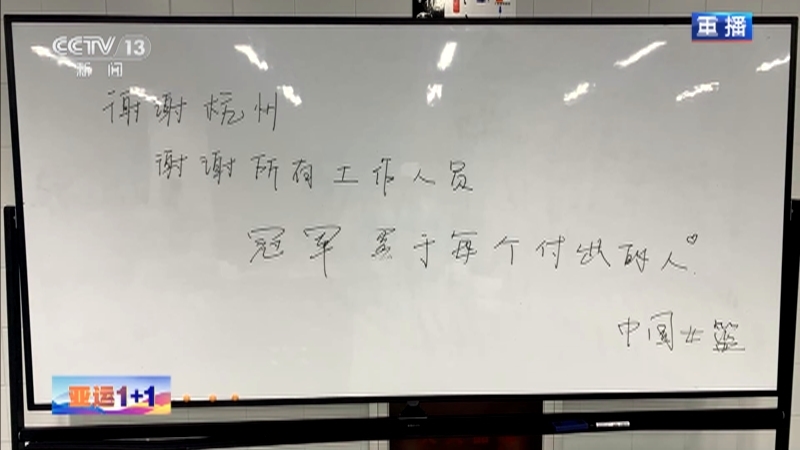 CCTV 13
新闻
重播
谢谢杭州
谢谢所有工作人员
冠军属于每个付出的人
中国女篮
亚运1+1